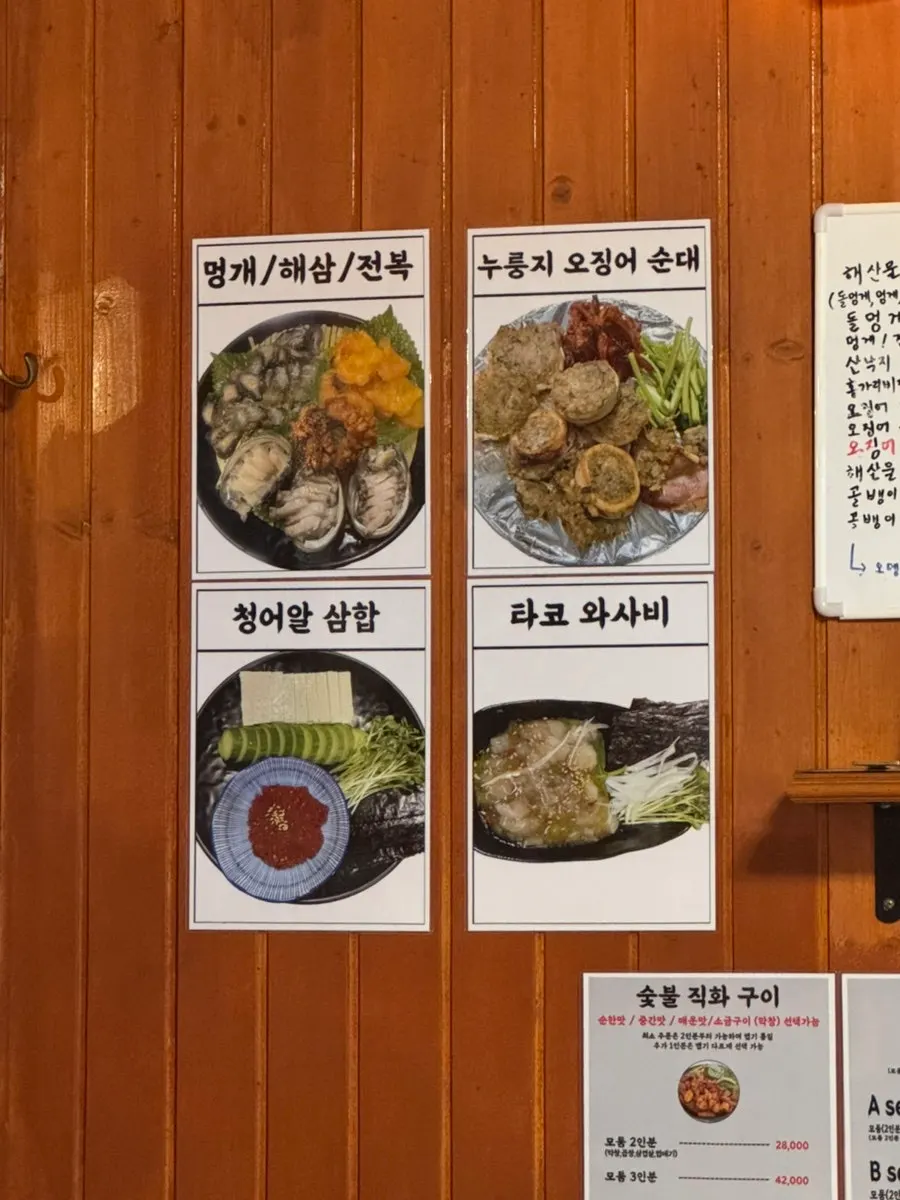 멍개/해삼/전복
누룽지 오징어 순대
청어알 삼합
타코 와사비
해산물
(돌멍게,멍게,
돌멍게
멍게!
산낙지
홍가리비
오징어
오징어
오징어
해산물
골뱅이
꼭뱅이
↳ 오뎅
숯불 직화 구이
순한맛 / 중간맛 / 매운맛/소금구이 (막창) 선택가능
최소 주문은 2인분부터 가능하며 맵기 통일
추가 1인분은 맵기 다르게 선택 가능
모듬 2인분 28,000
모듬 3인분 42,000
A se
모듬(2인분
B se
모듬(2인